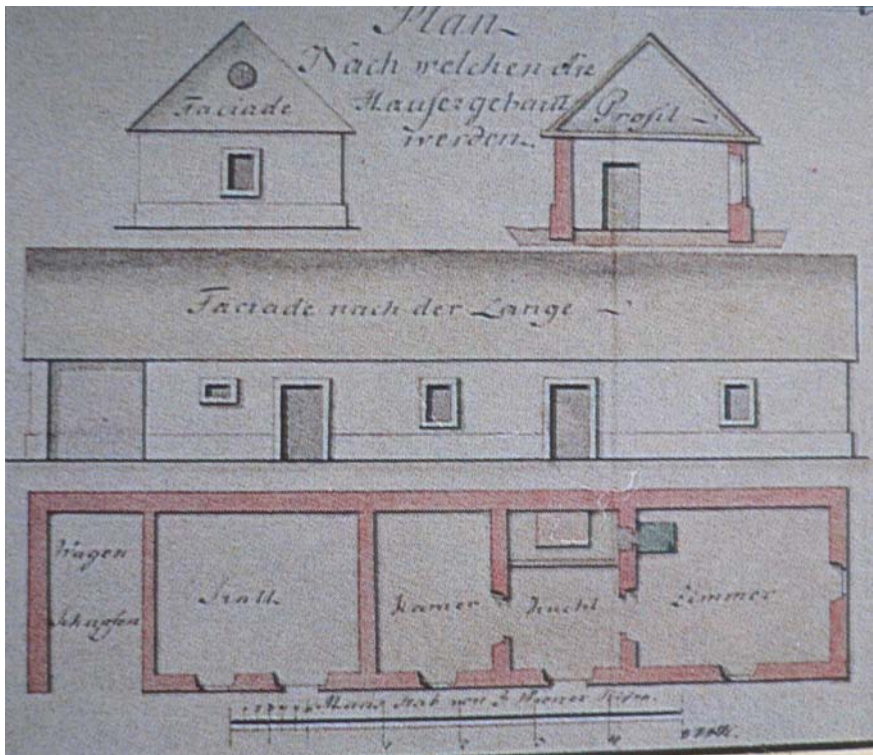 Plan
Nach welchen die
Hauser gebaut
werden.
Faciade
Profil
Faciade nach der Lange
Wagen
Schupfen
Stall
Kamer
Kuchl
Zimmer
Maas Stab von 5 Wiener
1 2 3 4